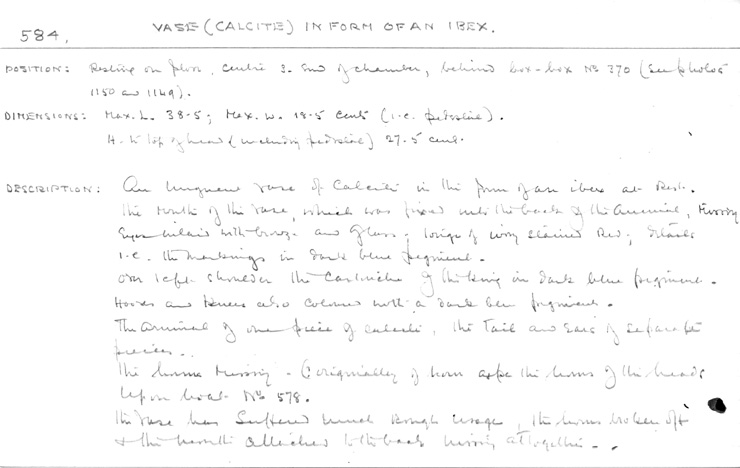 584. VASE (CALCITE) IN FORM OF AN IBEX.
POSITION: Resting on floor, centre S. end of chamber, behind bow-box No 370 (see photos
1150 and 1149).
DIMENSIONS: Max. L. 38.5; Max. W. 18.5 cents (i.e. pedestal).
H. to top of head (including pedestal) 27.5 cent.
DESCRIPTION: An unguent vase of calcite in the form of an ibex at rest.
The mouth of the vase, which was fixed into the back of the animal, missing
Eyes inlaid with bronze and glass; tongue of ivory stained red; details
i.e. the markings in dark blue pigment.
On left shoulder the cartouche of the king in dark blue pigment.
Hooves and knees also coloured with a dark blue pigment.
The animal of one piece of calcite, the tail and ears of separate
pieces.
The horns missing - (originally of horn as for the horns of the heads
upon boat No 578.
The vase has suffered much rough usage, the horns broken off
& the mouth attached to the back missing altogether.